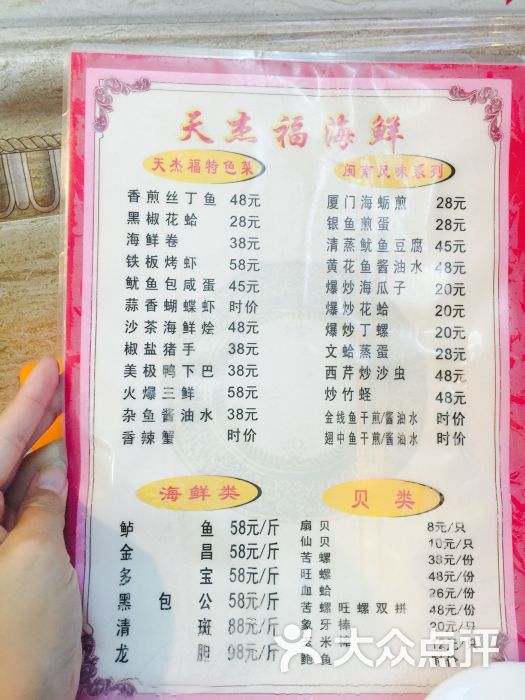 天杰福海鲜
天杰福特色菜
香煎丝丁鱼 48元
黑椒花蛤 28元
海鲜卷 38元
铁板烤虾 58元
鱿鱼包咸蛋 45元
蒜香蝴蝶虾 时价
沙茶海鲜烩 48元
椒盐猪手 38元
美极鸭下巴 38元
火爆三鲜 58元
杂鱼酱油水 38元
香辣蟹 时价
闽南风味系列
厦门海蛎煎 28元
银鱼煎蛋 28元
清蒸鱿鱼豆腐 45元
黄花鱼酱油水 48元
爆炒海瓜子 20元
爆炒花蛤 20元
爆炒丁螺 20元
文蛤蒸蛋 28元
西芹炒沙虫 48元
炒竹蛏 48元
金线鱼干煎/酱油水 时价
翅中鱼干煎/酱油水 时价
海鲜类
鲈鱼 58元/斤
金昌 58元/斤
多宝 58元/斤
黑包公 58元/斤
清斑 88元/斤
龙胆 98元/斤
贝类
扇贝 8元/只
仙贝 10元/只
苦螺 38元/份
旺螺 48元/份
血蛤 26元/份
苦螺旺螺双拼 48元/份
象牙棒 20元/只
玉米棒 12元/只
鲍鱼 时价
大众点评